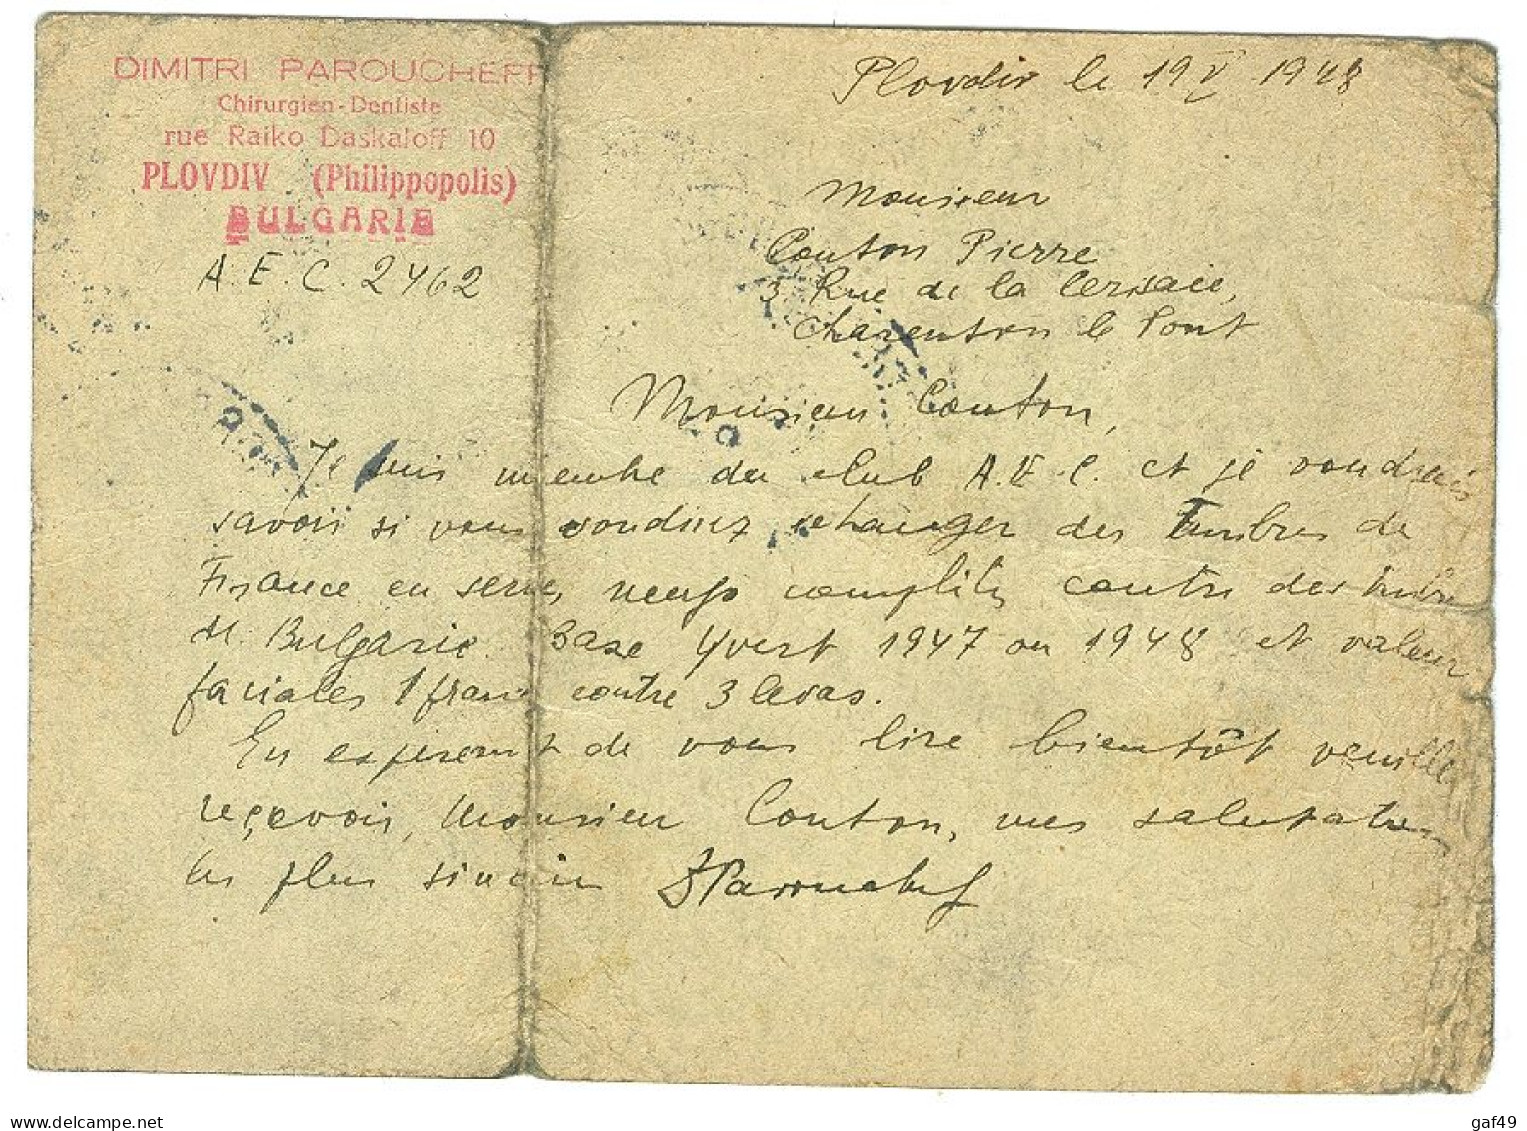 DIMITRI PAROUCHEFF
Chirurgien-Dentiste
rue Raiko Daskaloff 10
PLOVDIV (Philippopolis)
BULGARIE
A.E.C. 2462
Plovdiv le 19 V 1948
Monsieur
Couton Pierre
3 Rue de la Cerisaie,
Charenton le Pont
Monsieur Couton,
Je suis membre du club A.E.C. et je voudrais
savoir si vous voudriez echanger des timbres de
France en serie, neufs complits contre des timbre
de Bulgarie. Base Yvert 1947 ou 1948 et valeur
faciales 1 franc contre 3 levas.
En esperent de vous lire bientôt veuillez
reçevoir, Monsieur Couton, mes salutations
les plus sinceres DParoucheff
www.delcampe.net
gaf49